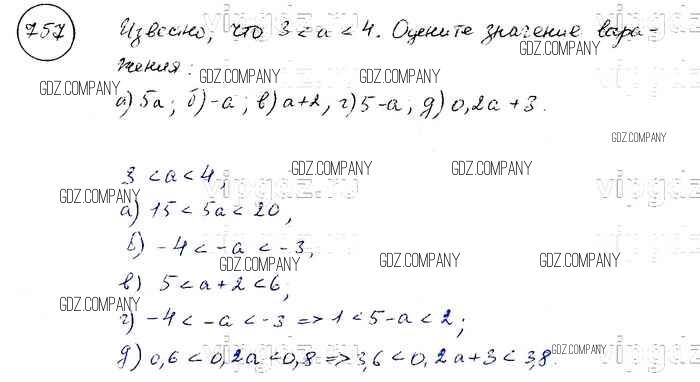 757 Известно, что 3 < a < 4. Оцените значение выра-
жения:
а) 5a; б) -a; в) a+2, г) 5-a, д) 0,2a+3.
3 < a < 4,
а) 15 < 5a < 20,
б) -4 < -a < -3,
в) 5 < a+2 < 6;
г) -4 < -a < -3 => 1 < 5-a < 2;
д) 0,6 < 0,2a < 0,8 => 3,6 < 0,2a+3 < 3,8.
GDZ.COMPANY
GDZ.COMPANY
GDZ.COMPANY
GDZ.COMPANY
GDZ.COMPANY
GDZ.COMPANY
GDZ.COMPANY
GDZ.COMPANY
GDZ.COMPANY
GDZ.COMPANY
GDZ.COMPANY
GDZ.COMPANY
GDZ.COMPANY
vipgdz.ru
vipgdz.ru
vipgdz.ru
vipgdz.ru